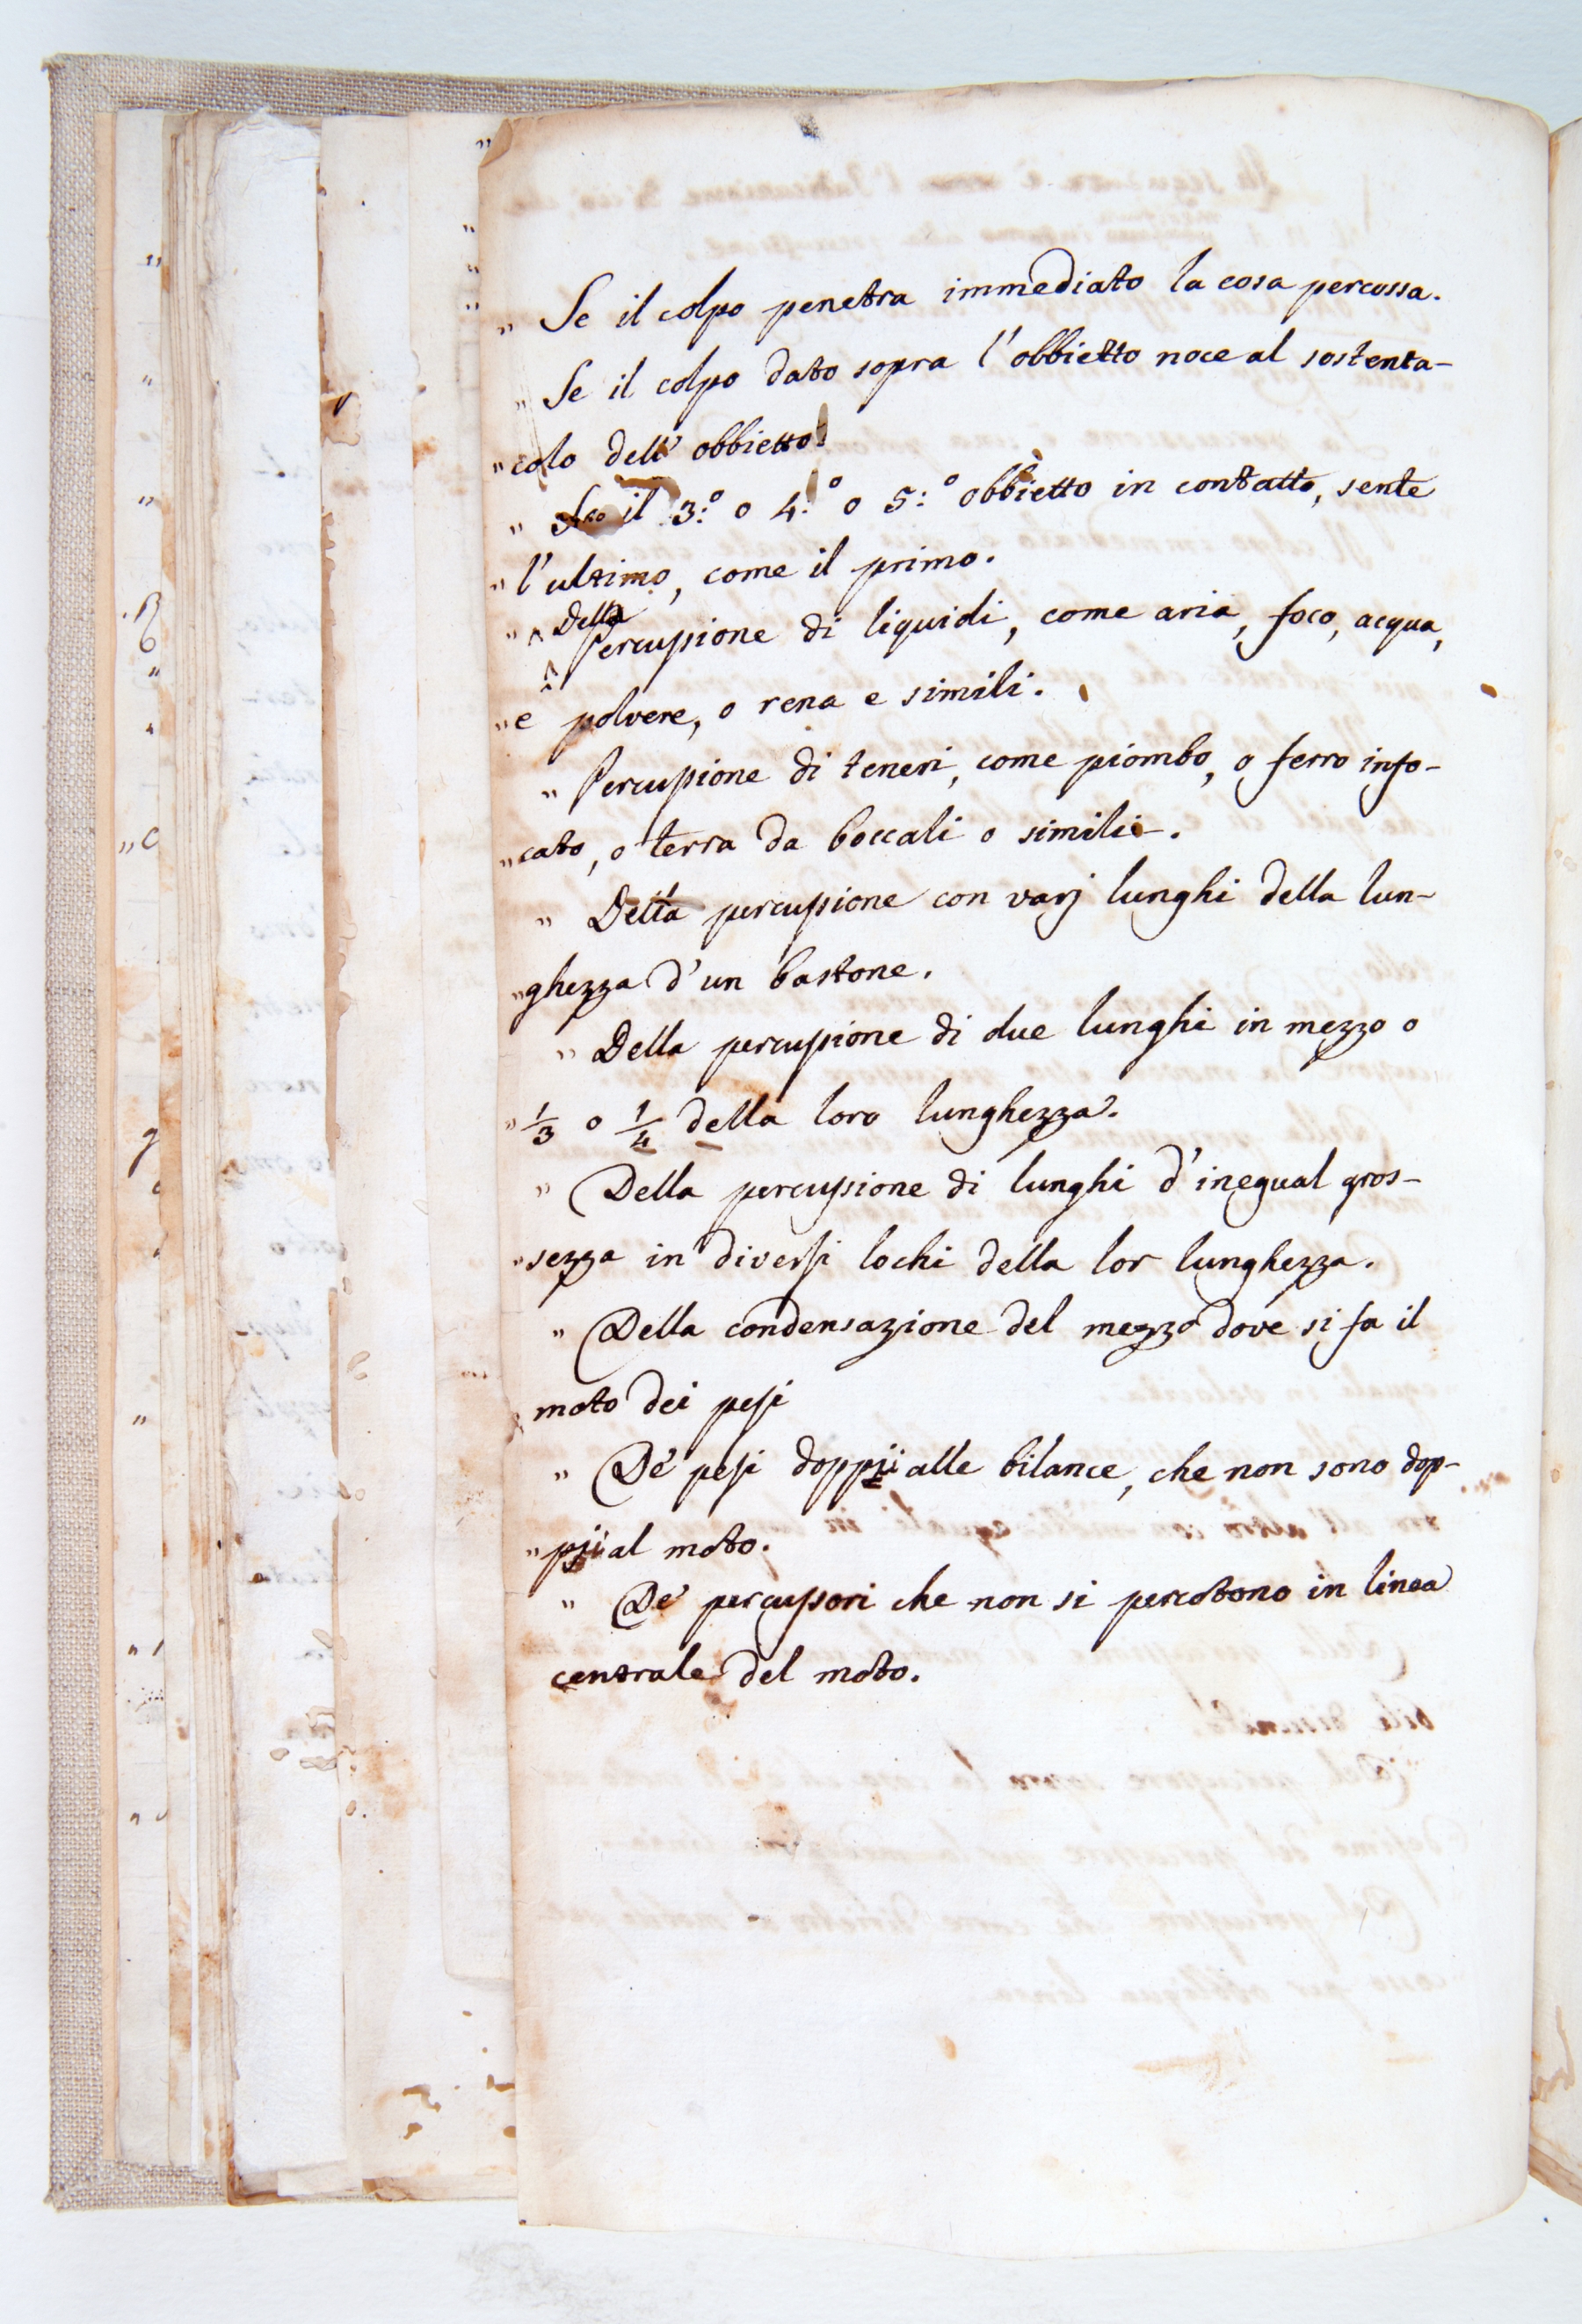 „ Se il colpo penetra immediato la cosa percossa.
„ Se il colpo dato sopra l'obbietto noce al sostenta-
„ colo dell' obbietto.
„ il 3.º o 4.º o 5.º obbietto in contatto, sente
„ l'ultimo, come il primo.
„ Della
Percussione di liquidi, come aria, foco, acqua,
„ e polvere, o rena e simili.
„ Percussione di teneri, come piombo, o ferro info-
„ cato, o terra da boccali o simili.
„ Della percussione con varj lunghi della lun-
„ ghezza d'un bastone.
„ Della percussione di due lunghi in mezzo o
„ 1/3 o 1/4 della loro lunghezza.
„ Della percussione di lunghi d'inegual gros-
„ sezza in diversi lochi della lor lunghezza.
„ Della condensazione del mezzo dove si fa il
moto dei pesi
„ De' pesi doppii alle bilance, che non sono dop-
„ pii al moto.
„ De' percussori che non si percotono in linea
centrale del moto.